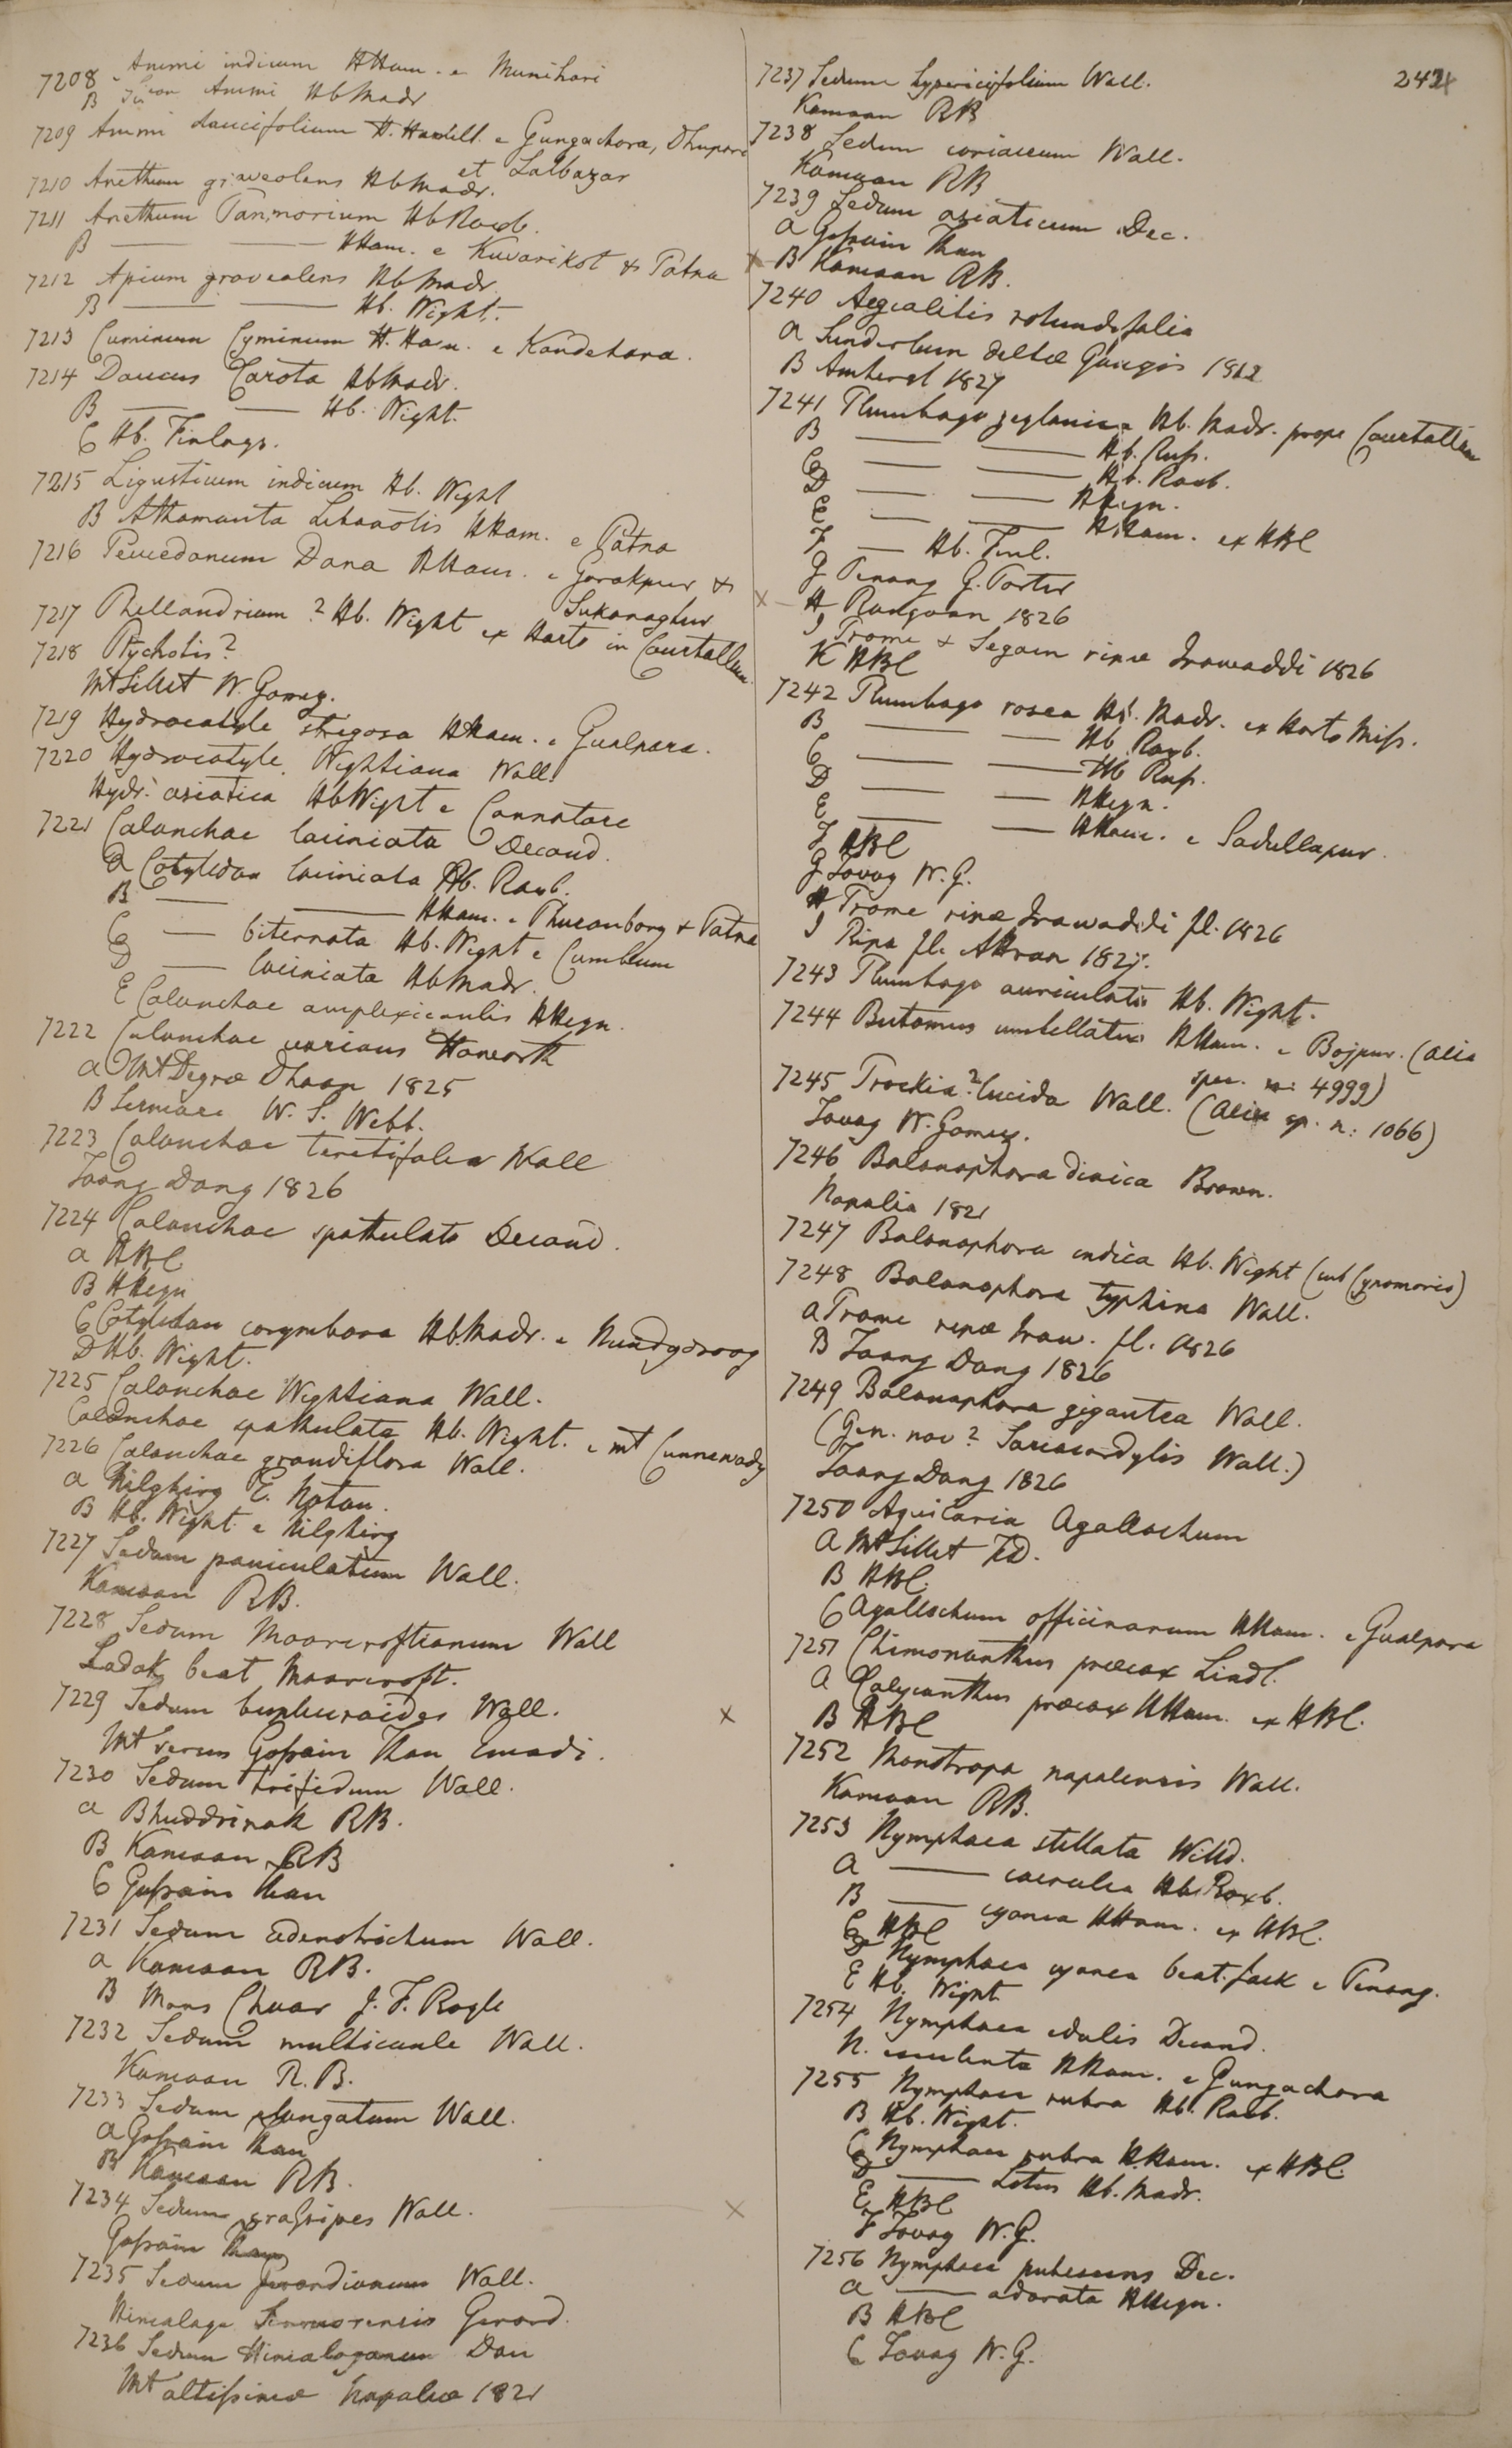 7208 Ammi indicum HHam. e Munihari
B Ammi HbMadr
7209 Ammi daucifolium H. Hamilt. e Gungachora, Dhupore
et Lalbazar
7210 Anethum graveolens HbMadr.
7211 Anethum Panmorium HbRoxb.
B — — HHam. e Kuvarikot & Patna
7212 Apium graveolens HbMadr.
B — — Hb. Wight.
7213 Cuminum Cyminum H. Ham. e Kandehara.
7214 Daucus Carota HbMadr.
B — — Hb. Wight.
C Hb. Finlays.
7215 Ligusticum indicum Hb. Wight
B Athamanta Libanotis HHam. e Patna
7216 Peucedanum Dana HHam. e Gorakpur &
Sukanaghur
7217 Phellandrium? Hb. Wight ex Horto in Courtallum
7218 Ptychotis?
Mt Sillet W. Gomez.
7219 Hydrocotyle strigosa HHam. e Gualpara.
7220 Hydrocotyle Wightiana Wall.
Hydr. asiatica HbWight e Cannatore
7221 Calanchae laciniata Decand.
a Cotyledon laciniata Hb. Roxb.
B — — HHam. e Patna
C — biternata Hb. Wight e Cumblum
D — laciniata HbMadr.
E Calanchae amplexicaulis HHeyn.
7222 Calanchae varians Haworth
a Mt Degræ Dhoon 1825
B Sermore W. S. Webb.
7223 Calanchae teretifolia Wall
Taong Dong 1826
7224 Calanchae spathulata Decand.
a HBC
B HHeyn
C Cotyledon corymbosa HbMadr. e Nundydroog
D Hb. Wight.
7225 Calanchae Wightiana Wall.
Calanchae spathulata Hb. Wight. e mt Cunnawady
7226 Calanchae grandiflora Wall.
a Nilghiry E. Noton.
B Hb. Wight e Nilghiry
7227 Sedum paniculatum Wall.
Kamaon RB.
7228 Sedum Moorcroftianum Wall
Ladak beat Moorcroft.
7229 Sedum bupleuroides Wall. ×
Mt versus Gossain Than Emodi.
7230 Sedum trifidum Wall.
a Bhuddrinath RB.
B Kamaon RB
C Gossain than
7231 Sedum adenotrichum Wall.
a Kamaon RB.
B Mons Chuar J. F. Royle
7232 Sedum multicaule Wall.
Kamaon R. B.
7233 Sedum elongatum Wall.
a Gossain than
B Kamaon RB.
7234 Sedum crassipes Wall. ×
Gossain Than
7235 Sedum Gerardianum Wall.
Himalaya Sermorensis Gerard.
7236 Sedum Himalayanum Don
Mt altissimæ Napaliæ 1821
242
7237 Sedum hypericifolium Wall.
Kamaon RB
7238 Sedum coriaceum Wall.
Kamaon RB
7239 Sedum asiaticum Dec.
a Gossain Than
× B Kamaon RB.
7240 Aegialitis rotundifolia
a Sunderbun deltæ Gangis 1812
B Amherst 1827
7241 Plumbago zeylanica Hb. Madr. prope Courtallum
B — — Hb. Russ.
C — — Hb. Roxb.
D — — HHeyn.
E — — HHam. ex HBC
F — Hb. Finl.
G Penang G. Porter
× H Rangoon 1826
I Prome & Segain ripæ Irawaddi 1826
K HBC
7242 Plumbago rosea Hb. Madr. ex Horto Miss.
B — — Hb Roxb.
C — — Hb Russ.
D — — HHeyn.
E — — HHam. e Sadullapur.
F HBC
G Tavoy W. G.
H Prome ripæ Irawaddi fl. 1826
I Ripa fl. Attran 1827.
7243 Plumbago auriculata Hb. Wight.
7244 Butomus umbellatus HHam. e Bojpur. (alia
spec. n: 4999)
7245 Trockia? lucida Wall. (alia sp. n: 1066)
Tavoy W. Gomez.
7246 Balanophora dioica Brown.
Napalia 1821
7247 Balanophora indica Hb. Wight (sub Cynomorio)
7248 Balanophora typhina Wall.
a Prome ripæ Iraw. fl. 1826
B Taong Dong 1826
7249 Balanophora gigantea Wall.
(Gen. nov? Sarcocordylis Wall.)
Taong Dong 1826
7250 Aquilaria Agallochum
a Mt Sillet FD.
B HBC.
C Agallochum officinarum HHam. e Gualpara
7251 Chimonanthus præcox Lindl.
a Calycanthus præcox HHam. ex HBC.
B HBC
7252 Monotropa napalensis Wall.
Kamaon RB.
7253 Nymphaea stellata Willd.
a — caerulea Hb. Roxb.
B — cyanea HHam. ex HBC.
C HBC
D Nymphaea cyanea beat. Jack e Penang.
E Hb. Wight.
7254 Nymphaea edulis Decand.
N. esculenta HHam. e Gungachora
7255 Nymphaea rubra Hb. Roxb.
B Hb. Wight.
C Nymphaea rubra HHam. ex HBC.
D — Lotus Hb. Madr.
E HBC
F Tavoy W. G.
7256 Nymphaea pubescens Dec.
a — odorata HHeyn.
B HBC
C Tavoy W. G.